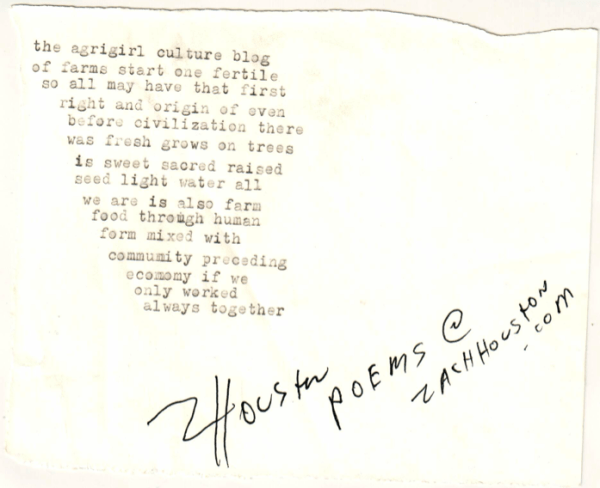 the agrigirl culture blog
of farms start one fertile
so all may have that first
right and origin of even
before civilization there
was fresh grows on trees
is sweet sacred raised
seed light water all
we are is also farm
food through human
form mixed with
community preceding
economy if we
only worked
always together
ZHouston
POEMS @
ZACHHOUSTON
.COM